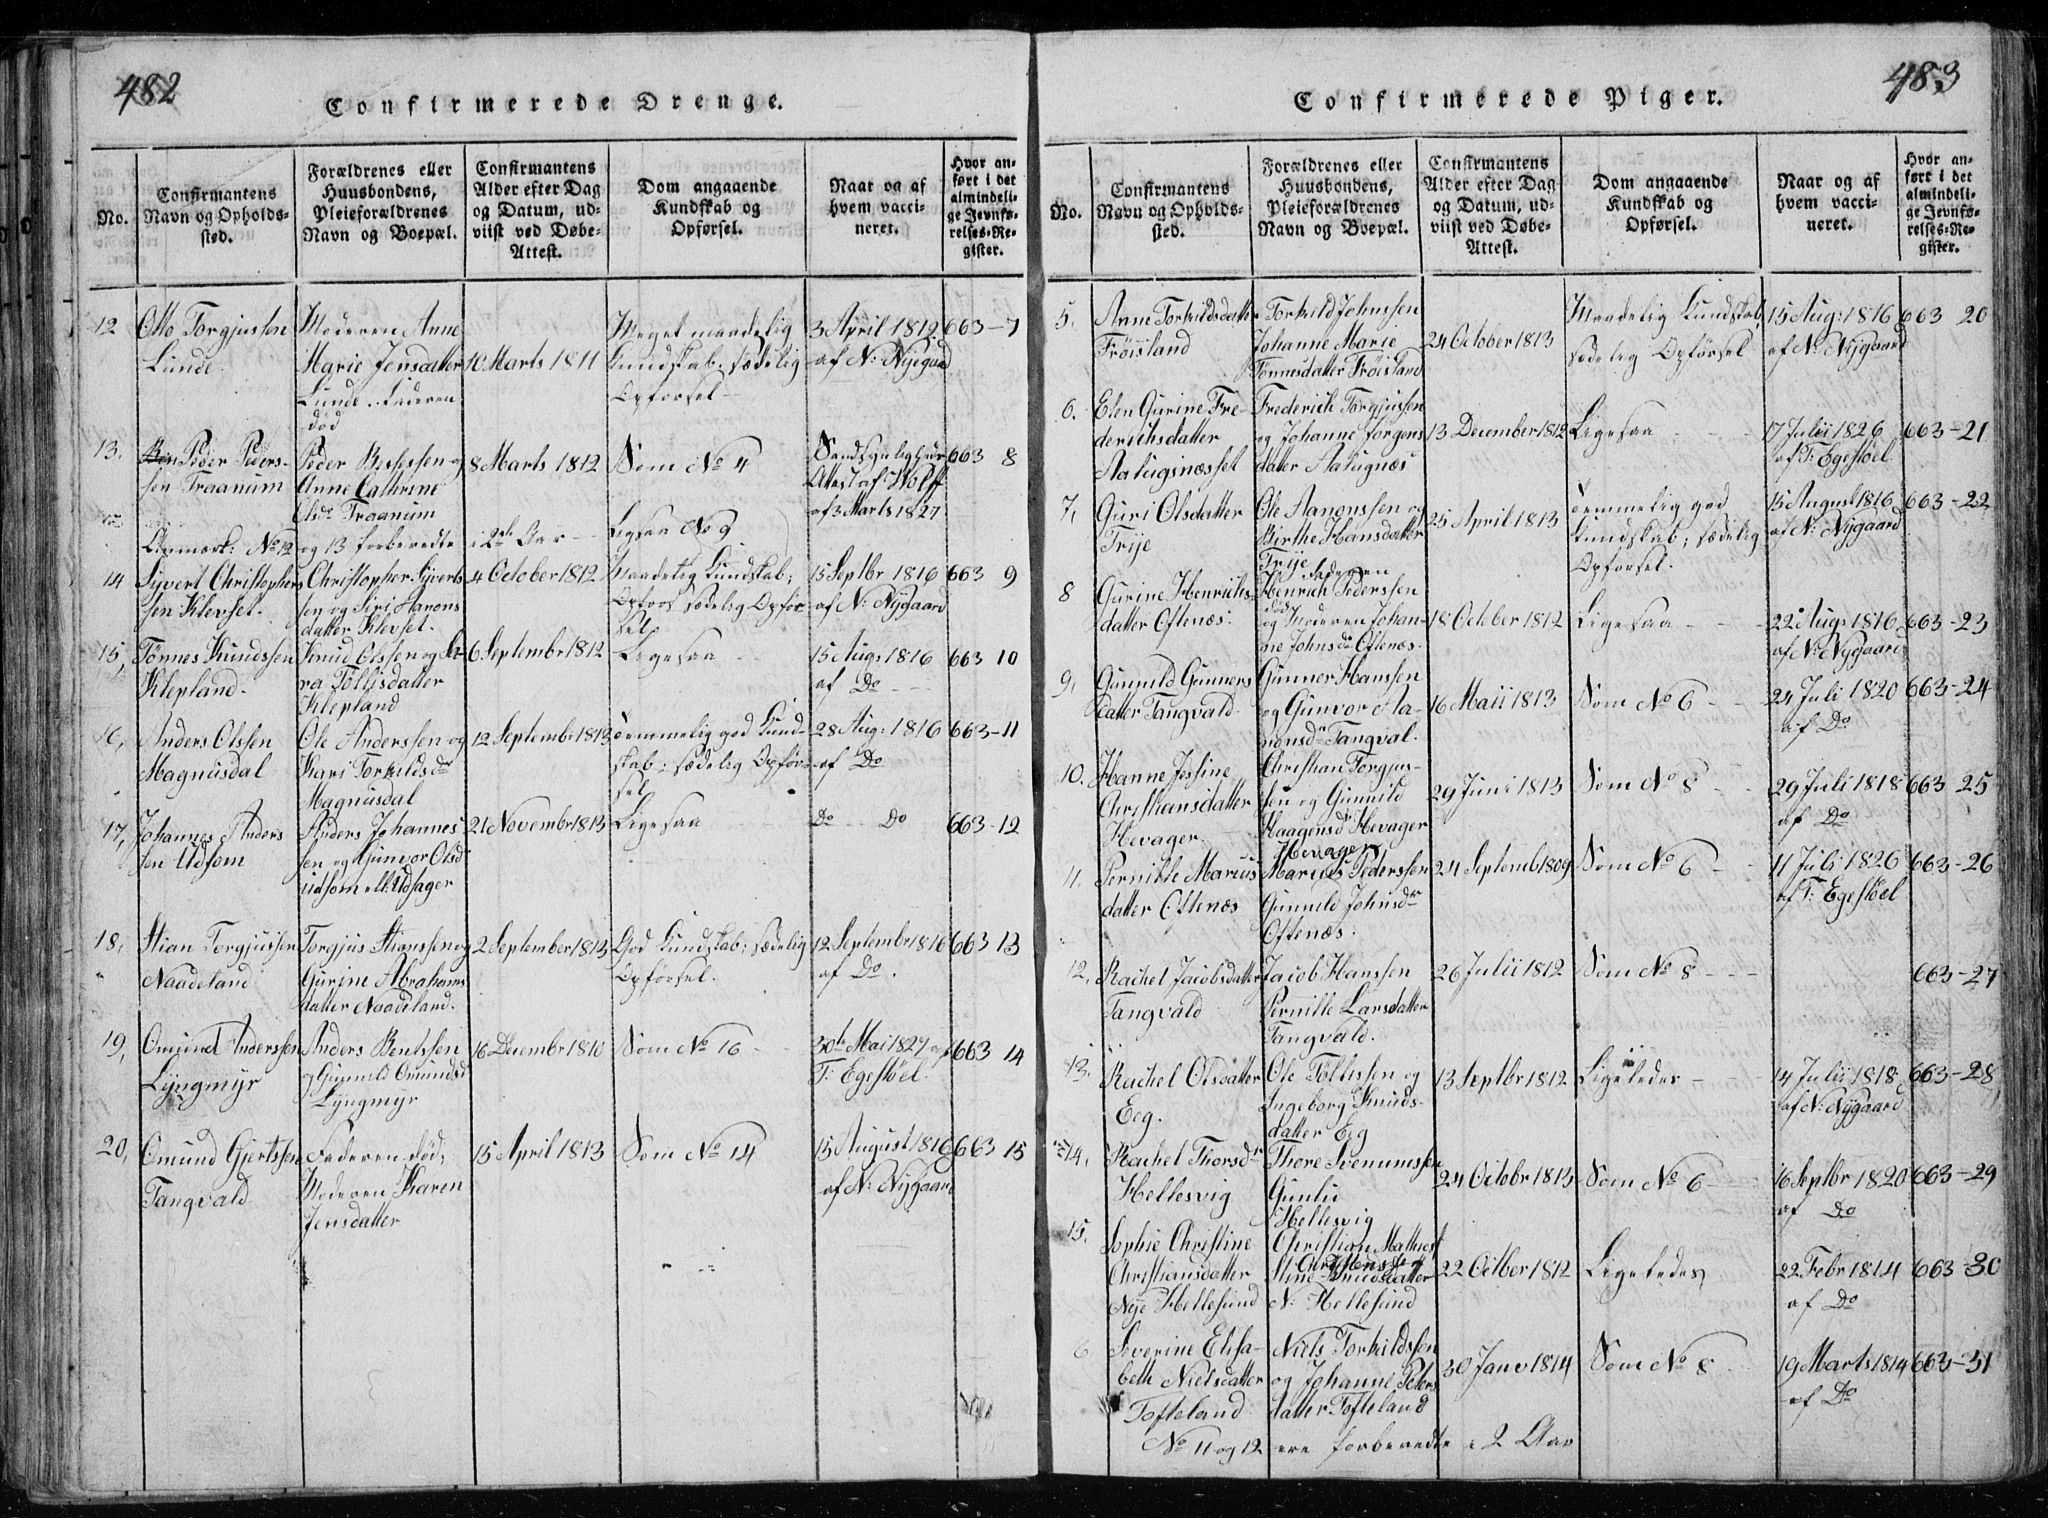 482
Confirmerede Drenge.
No.
Confirmantens
Navn og Opholds-
sted.
Forældrenes eller
Huusbondens,
Pleieforældrenes
Navn og Boepæl.
Confirmantens
Alder efter Dag
og Datum, ud-
viist ved Døbe-
Attest.
Dom angaaende
Kundskab og
Opførsel.
Naar og af
hvem vacci-
neret.
Hvor an-
ført i det
almindeli-
ge Jevnfø-
relses-Re-
gister.
12
Otto Torgjussen
Lunde.
Moderen Anne
Marie Jensdatter
Lunde. Faderen
død
10 Marts 1811
Meget maadelig
Kundskab; sædelig
Opførsel
3 April 1812
af N: Nyegaard
663-7
13.
Peder Peders-
sen Traanum
Peder Berntsen og
Anne Cathrine
Traanum
8 Marts 1812
Som No 4
Attest af Wolff
af 3 Marts 1827
663 8
Anmærk: No 12
og 13 forberedte
i 2de Aar
Ligesaa No 9
14
Syvert Christophers
sen Klevset.
Christopher Syverts
sen og Siri Aanons
datter Klevset.
4 October 1812
Maadelig Kundskab;
sædelig Opfør-
sel
15 Septbr 1816
af N: Nygaard
663 9
15,
Tönnes Knudssen
Klepland.
Knud Olssen og Sa-
ra Tollisdatter
Klepland
6 Septembr 1812
Ligesaa
15 Aug: 1816
af Do
663 10
16,
Anders Olssen
Magnusdal
Ole Anderssen og
Kari Torkildsdr
Magnusdal
12 Septembr 1813
Temmelig god Kund-
skab; sædelig Opfør-
sel
28 Aug: 1816
af Do
663-11
17,
Johannes Anders
sen Udsom
Anders Johannes
sen og Gunvor Olsd
udsom ell: Udsager
21 Novembr 1813
Ligesaa
Do Do
663-12
18,
Stian Torgjussen
Naadeland
Torgjus Stianssen og
Gurine Abrahams
datter Naadeland.
2 September 1813
God Kundskab; sædelig
Opførsel.
12 Septembr 1816
af Do.
663 13
19,
Omund Anderssen
Lyngmyr
Anders Bentssen
og Gunneld Omundsd
Lyngmyr
16 Decembr 1810
Som No 16
30te Mai 1827 af
T: Egestöel.
663 14
20,
Omund Gjertssen
Tangvald
Faderen død;
Moderen Karen
Jensdatter
15 April 1813
Som No 14
15 August 1816
af N: Nygaard
663 15
483
Confirmerede Piger.
No.
Confirmantens
Navn og Opholds-
sted.
Forældrenes eller
Huusbondens,
Pleieforældrenes
Navn og Boepæl.
Confirmantens
Alder efter Dag
og Datum, ud-
viist ved Døbe-
Attest.
Dom angaaende
Kundskab og
Opførsel.
Naar og af
hvem vacci-
neret.
Hvor an-
ført i det
almindeli-
ge Jevnfø-
relses-Re-
gister.
5.
Anne Torkildsdatter
Fröisland
Torkild Johnssen
Johanne Marie
Tönnesdatter Fröisland
24 October 1813
Maadelig Kundskab,
sædelig Opförsel
15 Aug: 1816
af N: Nygaard
663 20
6.
Elen Gurine Fre-
deriksdatter
Aatugnæsset
Frederich Torgjussen
og Johanne Jörgens
datter Aatugnæs
13 December 1812
Ligesaa
17 Julii 1826
af T: Egestöel
663-21
7,
Guri Olsdatter
Trije
Ole Aanonssen og
Birthe Hansdatter
Trije
25 April 1813
Temmelig god
Kundskab; sædelig
Opförsel.
15 August 1816
af N: Nygaard
663-22
8
Gurine Henrichs-
datter Oftenæs.
Faderen
Henrich Pederssen
død
og Moderen Johan-
ne Johnsdr Oftenæs.
18 October 1812
Ligesaa
22 Aug: 1816
af N: Nygaard
663-23
9,
Gunnuld Gunners
datter Tangvald.
Gunner Hanssen
og Gunvor Aa-
nonsdr Tangval.
16 Maii 1813
Som No 6
24 Juli 1820
af Do
663-24
10.
Hanne Jossine
Christiansdatter
Hevager
Christian Torgjus-
sen og Gunnild
Haagensdr Hevager
Hevager
29 Juni 1813
Som No 8
29 Juli 1818
af Do
663 25
11.
Pernille Marius
datter Oftenæs
Marius Pederssen
Gunnild Johnsdr
Oftenæs.
24 Septemb 1809
Som No 6
11 Juli 1826
af T: Egestöel
663-26
12,
Rachel Jacobsdatter
Tangvald
Jacob Hanssen
Pernille Larsdatter
Tangvald.
26 Julii 1812
Som No 8
663-27
13.
Rachel Olsdatter
Eeg.
Ole Tollissen og
Ingeborg Knuds-
datter Eeg
13 Septbr 1812
Ligeledes
14 Julii 1818
af N: Nygaard
663-28
14,
Rachel Thorsdr
Hellesvig
Thore Svenumssen
Gunlu
Hellesvig
24 Octobr 1813
Som No 6
16 Septbr 1820
af Do
663-29
15.
Sophie Christine
Christiansdatter
Nye Hellesund
Christian Mathies
Christenssen
Stine Knudsdatter
N: Hellesund
22 Octber 1812
Ligeledes
22 Febr 1814
af Do
663-30
6.
Severine Elisa-
beth Nielsdatter
Tofteland
Niels Torkildssen
og Johanne Peters
datter Tofteland
30 Janv 1814
Som No 8
19 Marts 1814
af Do
663-31
No 11 og 12 ere forberedte i 2 Aar